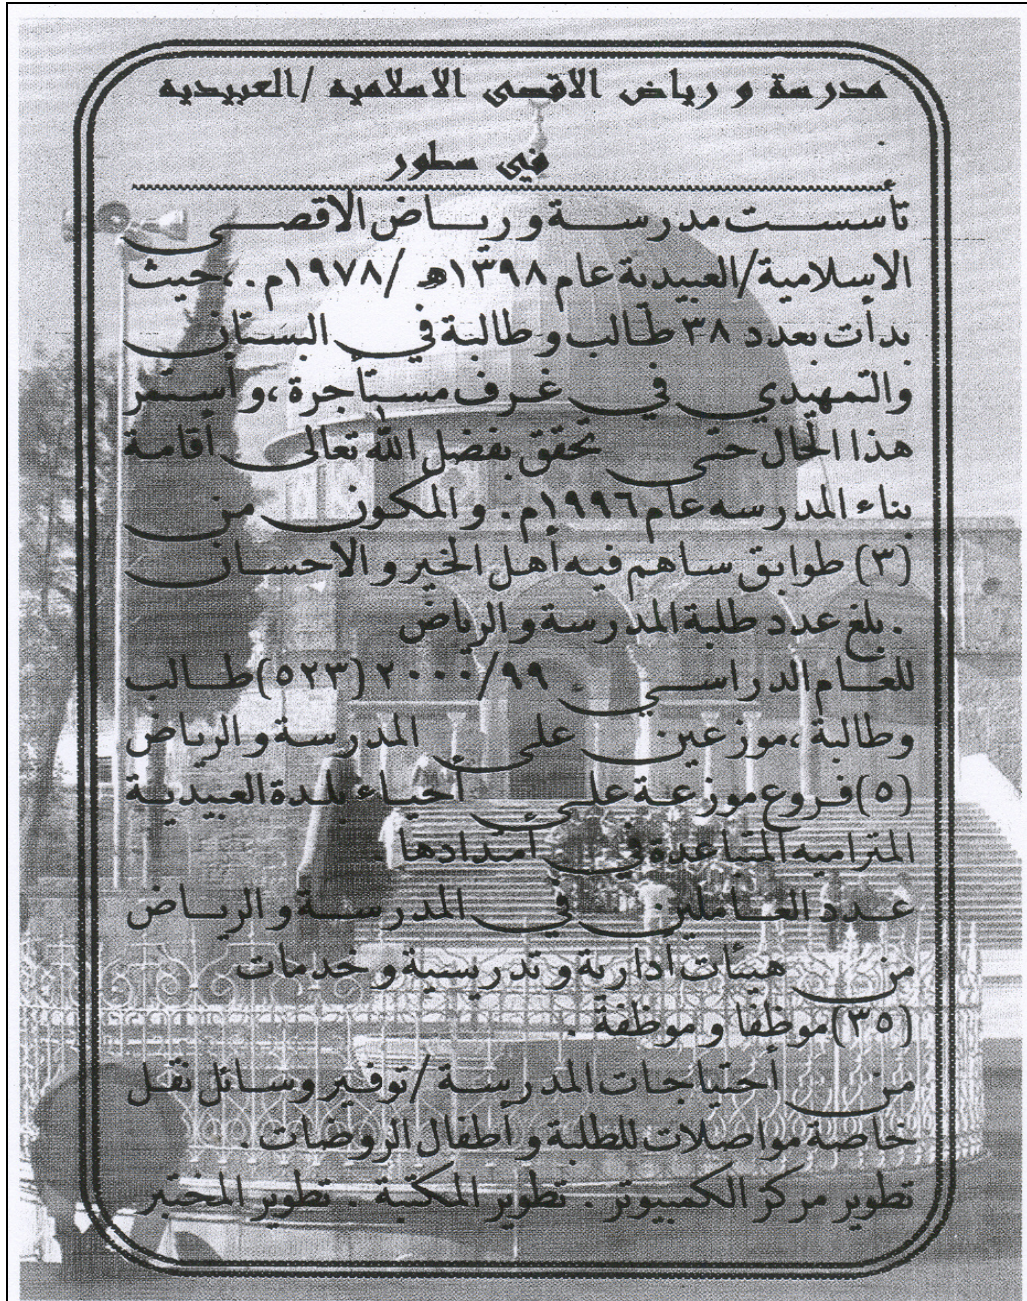 مدرسة و رياض الاقصى الاسلاميه /العبيديه
في سطور
تأسست مدرسة و رياض الاقصى
الأسلامية/العبيدية عام ١٣٩٨ه /١٩٧٨م . ،حيث
بدأت بعدد ٣٨ طالب و طالبة في البستان
والتمهيدي في غرف مستأجرة ،و أستمر
هذا الحال حتى تحقق بفضل الله تعالى أقامة
بناء المدرسه عام ١٩٩٦م . و المكون من
(٣) طوابق ساهم فيه أهل الخير و الاحسان
. بلغ عدد طلبة المدرسة و الرياض
للعام الدراسي ٢٠٠٠/٩٩ (٥٢٣) طالب
وطالبة ،موزعين على المدرسة و الرياض
(٥) فروع موزعة على أحياء بلدة العبيدية
المتراميه المتباعدة في أمتدادها .
عدد العاملين في المدرسة و الرياض
من هيئات أدارية و تدريسية و خدمات
(٣٥) موظفا و موظفة .
من أحتياجات المدرسة /توفير وسائل نقل
خاصة مواصلات للطلبة و أطفال الروضات .
تطوير مركز الكمبيوتر . تطوير المكتبة . تطوير المختبر